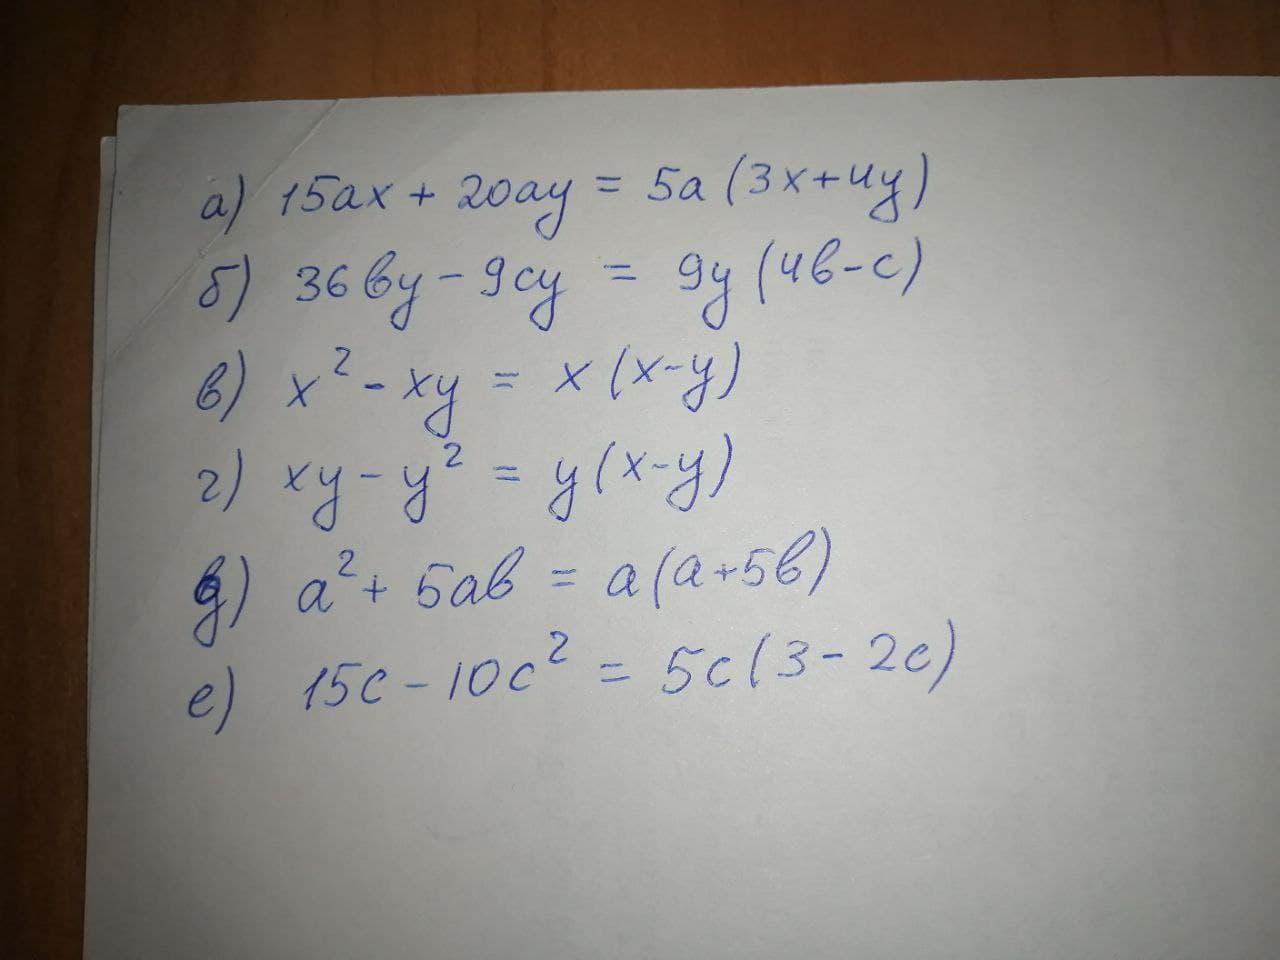 а) 15ax + 20ay = 5a (3x+4y)
б) 36by - 9cy = 9y (4b-c)
в) x² - xy = x (x-y)
г) xy - y² = y (x-y)
д) a² + 5ab = a (a+5b)
е) 15c - 10c² = 5c (3 - 2c)